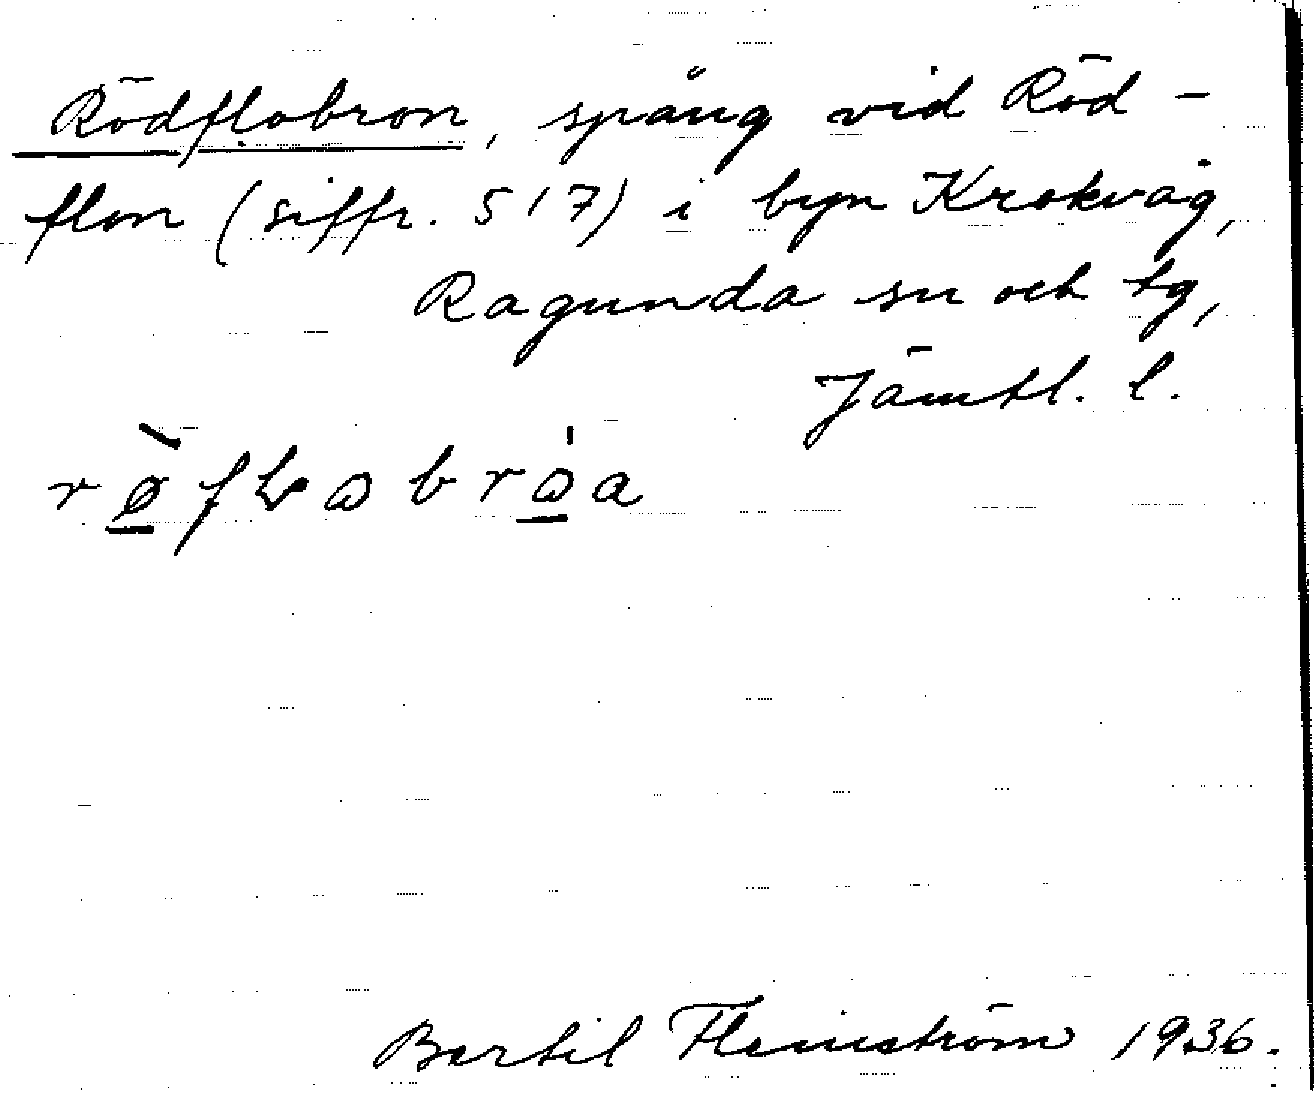 Rödflobron, spång vid Röd-
flon (siffr. 517) i byn Krokvåg,
Ragunda sn och tg,
Jämtl. l.
Bertil Flemström 1936.